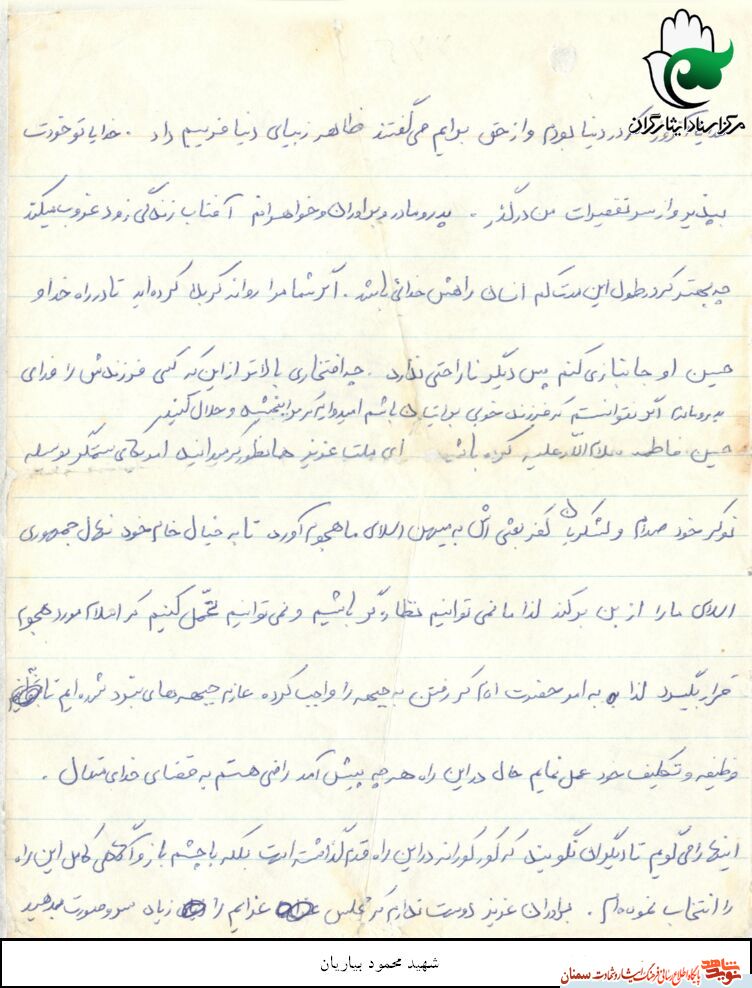 مرکز اسناد ایثارگران
در دنیا بودم و از حق برایم می گفتند ظاهر زیبای دنیا فریبم داد . خدایا تو خودت
بپذیر و از سر تقصیرات من درگذر . پدر و مادر و برادران و خواهرانم آفتاب زندگی زود غروب میکند
چه بهتر که در طول این مدت کم انسان راهش خدائی باشد . اگر شما مرا روانه کربلا کرده اید تا در راه خدا و
حسین او جانبازی کنم پس دیگر ناراحتی ندارد . چه افتخاری بالاتر از این که کسی فرزندش را فدای
اگر نتوانستم که فرزند خوبی برایتان باشم امیدوارم که مرا ببخشید و حلال کنید
حسین فاطمه سلام الله علیه کرده باشد ای ملت عزیز همانطور که میدانید امریکای ستمگر بوسیله
نوکر خود صدام و لشکریان کفر بعثی اش به میهن اسلامی ما هجوم آورد تا به خیال خام خود نهال جمهوری
اسلامی ما را از بین برکند لذا ما نمی توانیم نظاره گر باشیم و نمی توانیم تحمل کنیم که اسلام مورد هجوم
قرار بگیرد لذا به امر حضرت امام که رفتن به جبهه را واجب کرده عازم جبهه های نبرد شده ایم تا
وظیفه و تکلیف خود عمل نمایم حال در این راه هر چه پیش آمد راضی هستم به قضای خدای متعال .
اینها را می گویم تا دیگران نگویند که کورکورانه در این راه قدم گذاشته است بلکه با چشم باز و آگاهی کامل این راه
را انتخاب نموده ام . برادران عزیز دوست ندارم که مجلس عزایم را زیاد سر و صورت بدهید
شهید محمود بیاریان
نوید شاهد
پایگاه اطلاع رسانی فرهنگ ایثار و شهادت سمنان